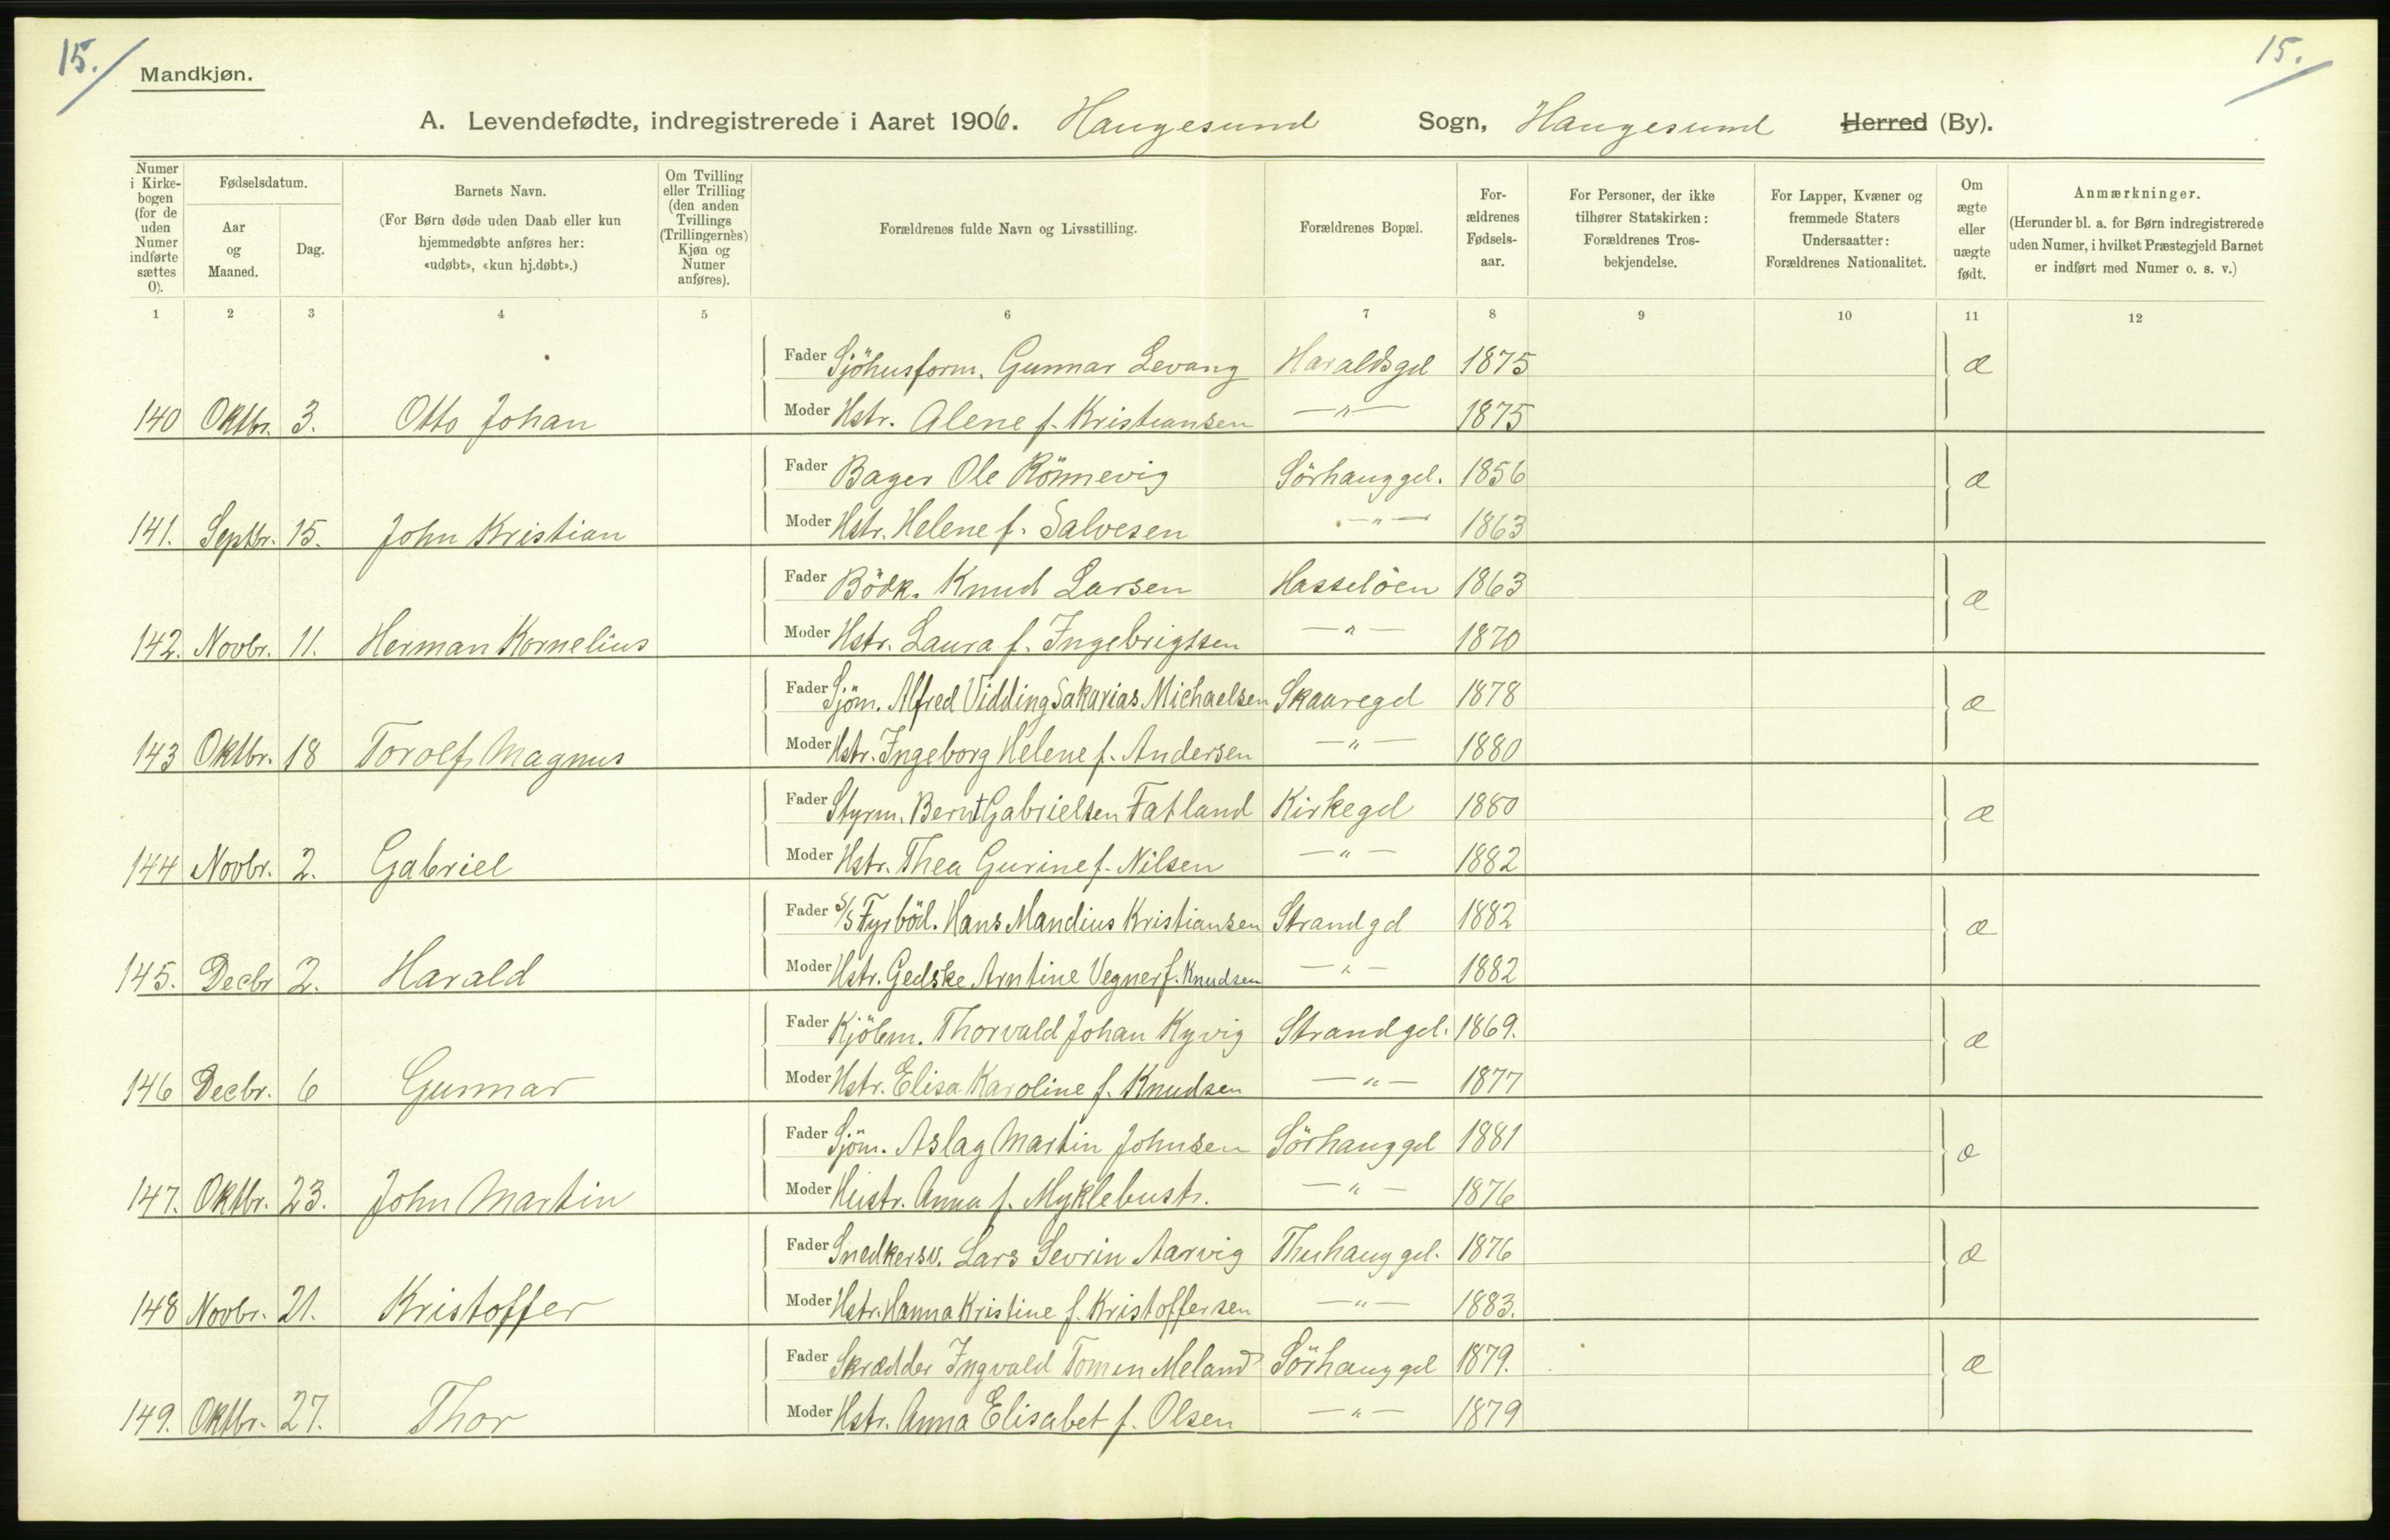 15.
15.
Mandkjøn.
A. Levendefødte, indregistrerede i Aaret 1906. Haugesund Sogn, Haugesund Herred (By).
Numer i Kirke-bogen (for de uden Numer indførte sættes 0).
Fødselsdatum.
Aar og Maaned.
Dag.
Barnets Navn.
(For Børn døde uden Daab eller kun hjemmedøbte anføres her: «udøbt», «kun hj.døbt».)
Om Tvilling eller Trilling (den anden Tvillings (Trillingernes) Kjøn og Numer anføres).
Forældrenes fulde Navn og Livsstilling.
Forældrenes Bopæl.
For-ældrenes Fødsels-aar.
For Personer, der ikke tilhører Statskirken: Forældrenes Tros-bekjendelse.
For Lapper, Kvæner og fremmede Staters Undersaatter: Forældrenes Nationalitet.
Om ægte eller uægte født.
Anmærkninger.
(Herunder bl. a. for Børn indregistrerede uden Numer, i hvilket Præstegjeld Barnet er indført med Numer o. s. v.)
1 2 3 4 5 6 7 8 9 10 11 12
Fader Sjöhusform. Gunnar Levang Haraldsgd 1875 æ
140 Oktbr. 3. Otto Johan Moder Hstr. Alene f. Kristiansen —"— 1875
Fader Bager Ole Rönnevig Sörhauggd. 1856 æ
141. Septbr. 15. John Kristian Moder Hstr. Helene f. Salvesen —"— 1863
Fader Bödk. Knud Larsen Hasselöen 1863 æ
142. Novbr. 11. Herman Kornelius Moder Hstr. Laura f. Ingebrigtsen —"— 1870
Fader Sjöm. Alfred Vidding Sakarias Michaelsen Skaaregd 1878 æ
143 Oktbr. 18 Torolf Magnus Moder Hstr. Ingeborg Helene f. Andersen —"— 1880
Fader Styrm. Bernt Gabrielsen Fatland Kirkegd 1880 æ
144 Novbr. 2. Gabriel Moder Hstr. Thea Gurine f. Nilsen —"— 1882
Fader S/S Fyrböd. Hans Mandius Kristiansen Strandgd 1882 æ
145. Decbr 2. Harald Moder Hstr. Gedske Arntine Vegner f. Knudsen —"— 1882
Fader Kjöbm. Thorvald Johan Kyvig Strandgd. 1869. æ
146 Decbr. 6 Gunnar Moder Hstr. Elisa Karoline f. Knudsen —"— 1877
Fader Sjöm. Aslag Martin Johnsen Sörhauggd 1881 æ
147. Oktbr. 23. John Martin Moder Hustr. Anna f. Myklebustr. —"— 1876
Fader Snedkersv. Lars Sevrin Aarvig Thuhauggd. 1876 æ
148 Novbr. 21. Kristoffer Moder Hstr. Hanna Kristine f. Kristoffersen —"— 1883.
Fader Skrædder Ingvald Tomen Meland Sörhauggd 1879. æ
149. Oktbr. 27. Thor Moder Hstr. Anna Elisabet f. Olsen —"— 1879